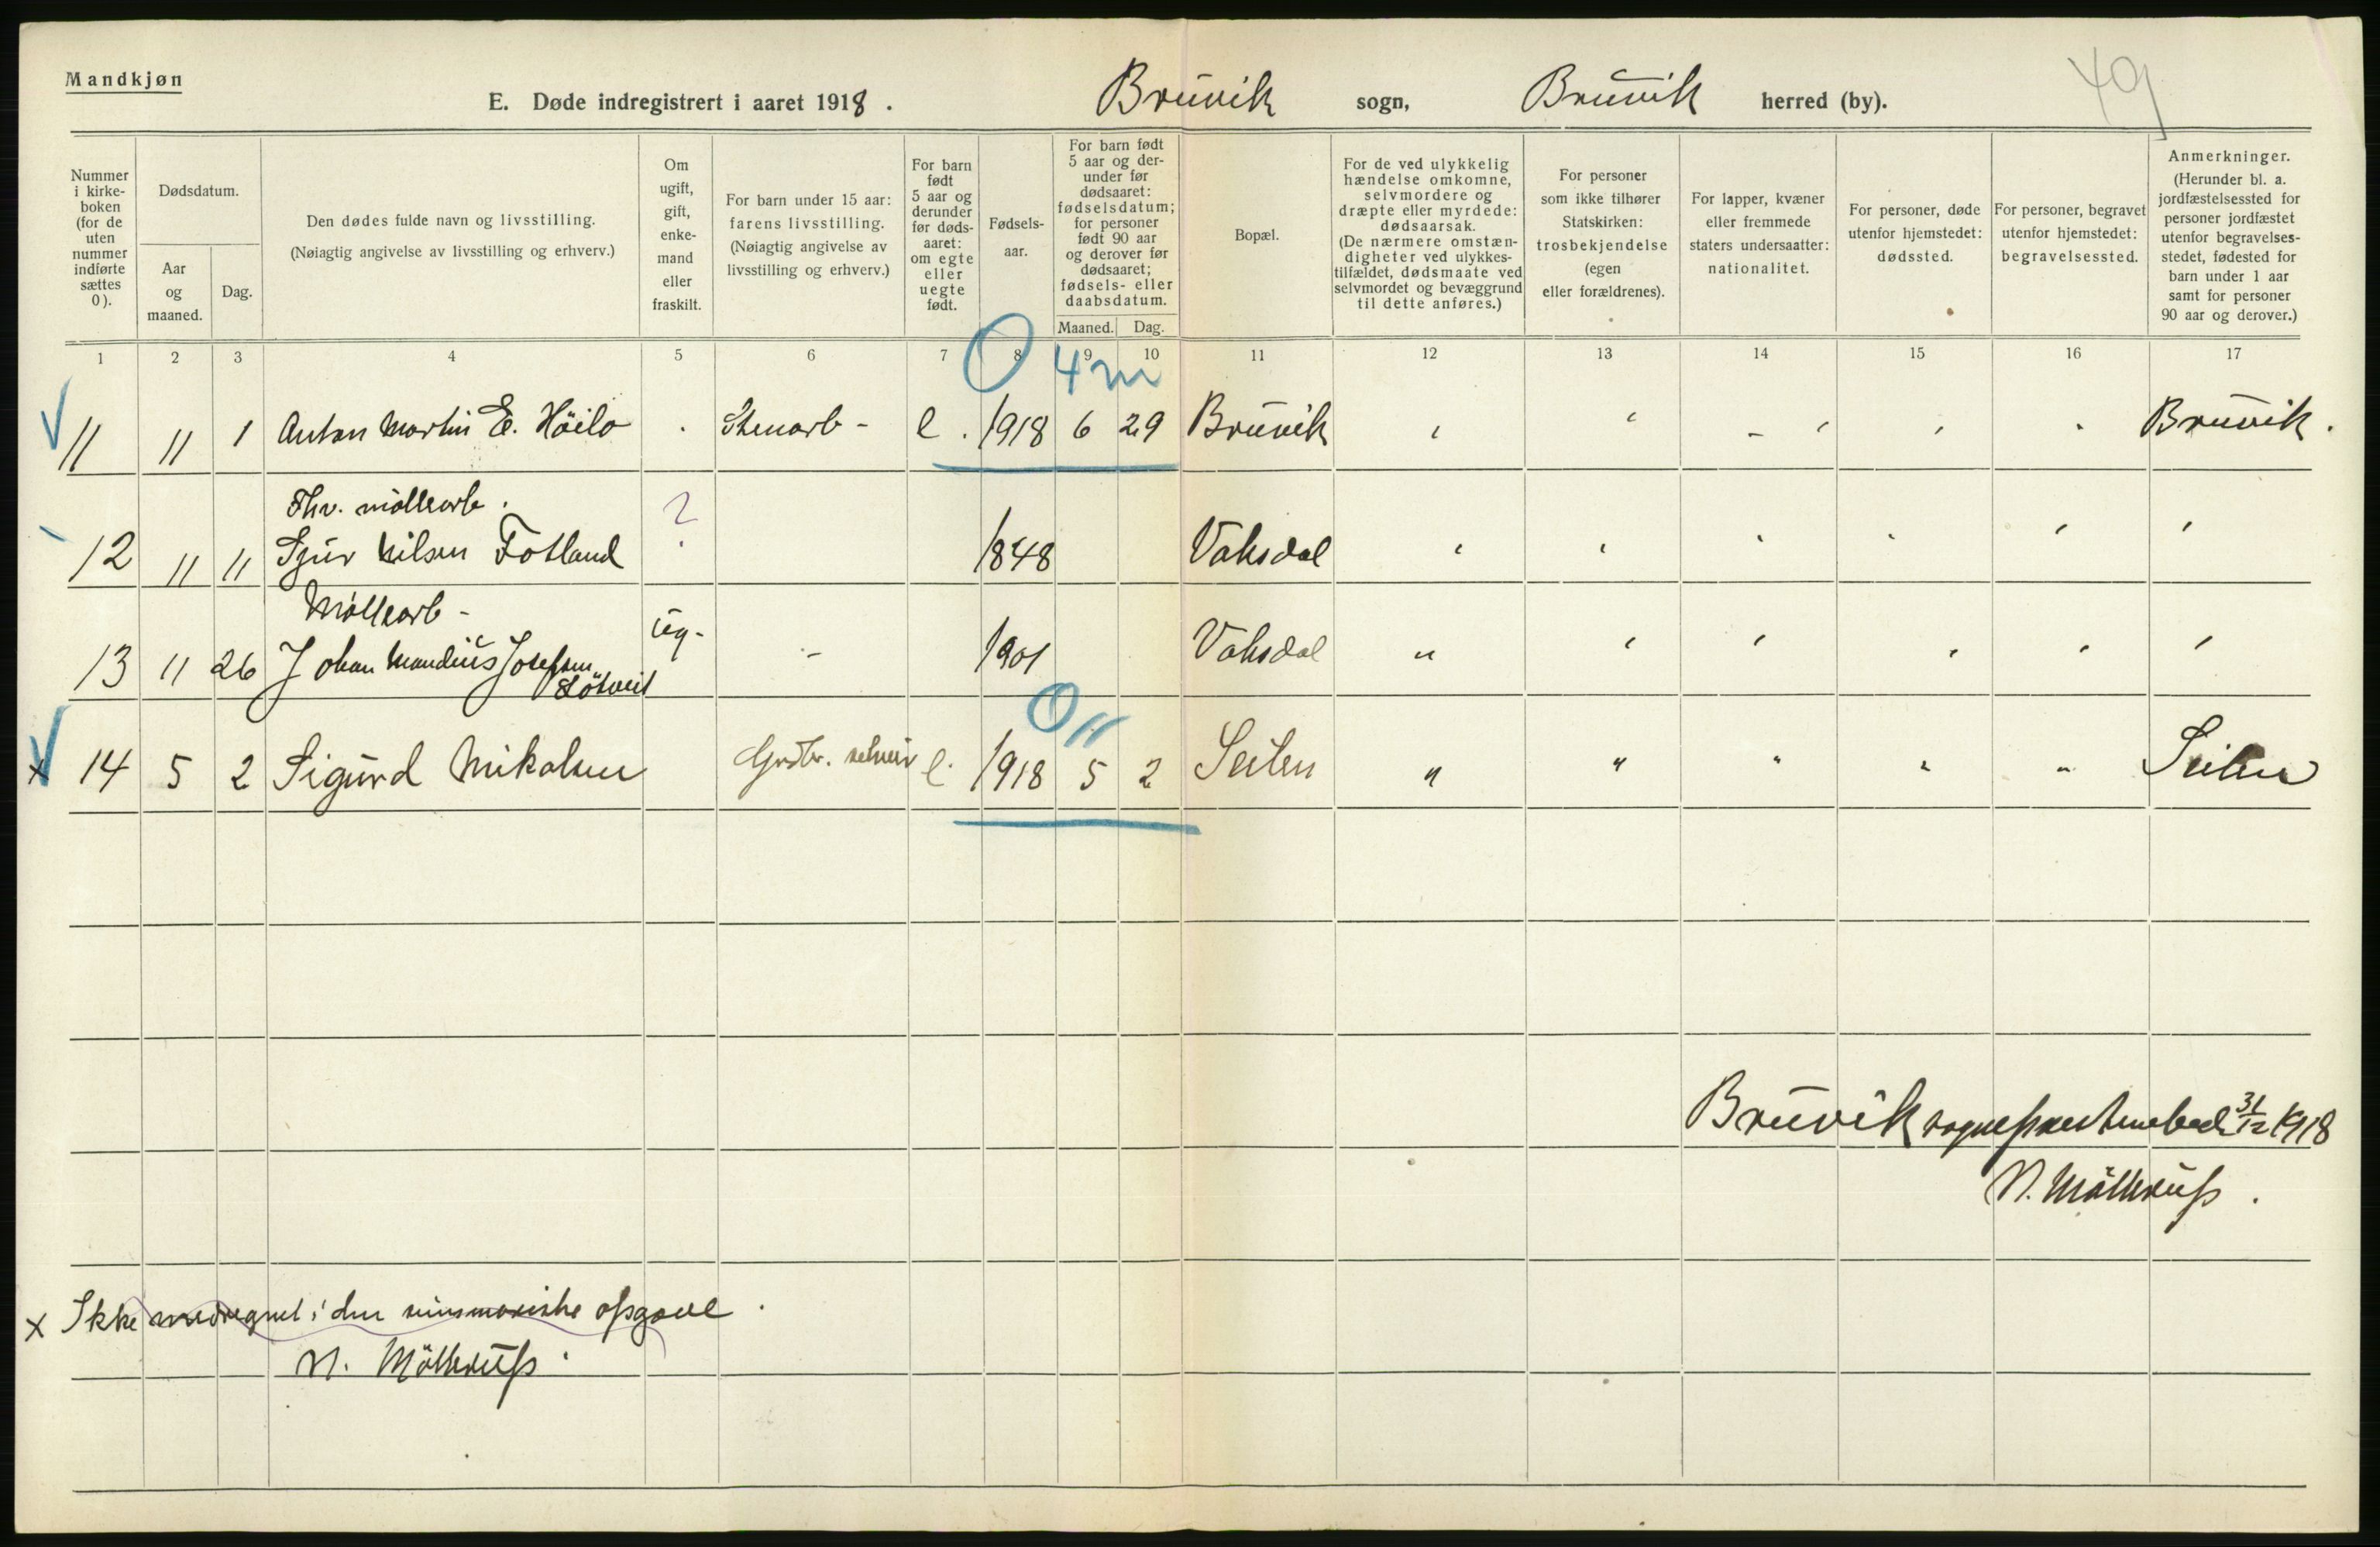 Mandkjøn
E. Døde indregistrert i aaret 1918. Bruvik sogn, Bruvik herred (by).
49
Nummer i kirkeboken (for de uten nummer indførte sættes 0).
Dødsdatum.
Aar og maaned.
Dag.
Den dødes fulde navn og livsstilling.
(Nøiagtig angivelse av livsstilling og erhverv.)
Om ugift, gift, enkemand eller fraskilt.
For barn under 15 aar: farens livsstilling.
(Nøiagtig angivelse av livsstilling og erhverv.)
For barn født 5 aar og derunder før dødsaaret: om egte eller uegte født.
Fødselsaar.
For barn født 5 aar og derunder før dødsaaret: fødselsdatum; for personer født 90 aar og derover før dødsaaret; fødsels- eller daabsdatum.
Maaned. Dag.
Bopæl.
For de ved ulykkelig hændelse omkomne, selvmordere og dræpte eller myrdede: dødsaarsak.
(De nærmere omstændigheter ved ulykkestilfældet, dødsmaate ved selvmordet og bevæggrund til dette anføres.)
For personer som ikke tilhører Statskirken: trosbekjendelse (egen eller forældrenes).
For lapper, kvæner eller fremmede staters undersaatter: nationalitet.
For personer, døde utenfor hjemstedet: dødssted.
For personer, begravet utenfor hjemstedet: begravelsessted.
Anmerkninger.
(Herunder bl. a. jordfæstelsessted for personer jordfæstet utenfor begravelsesstedet, fødested for barn under 1 aar samt for personer 90 aar og derover.)
1 2 3 4 5 6 7 8 9 10 11 12 13 14 15 16 17
0 4 m
11 11 1 Anton Martin E. Höilo Stenarb - e. 1918 6 29 Bruvik Bruvik.
Fhv. möllearb.
12 11 11 Sjur Nilsen Fotland ? 1848 Vaksdal
Möllearb -
13 11 26 Johan Mandius Josefsen ug. - 1901 Vaksdal
0 11
x 14 5 2 Sigurd Mikalsen Grdbr. selveier e. 1918 5 2 Seilen " " " Seilen
Bruvik sogneprestembed 31/12 1918
N. Möllerup.
x Ikke medregnet i den summariske opgave.
N. Möllerup.